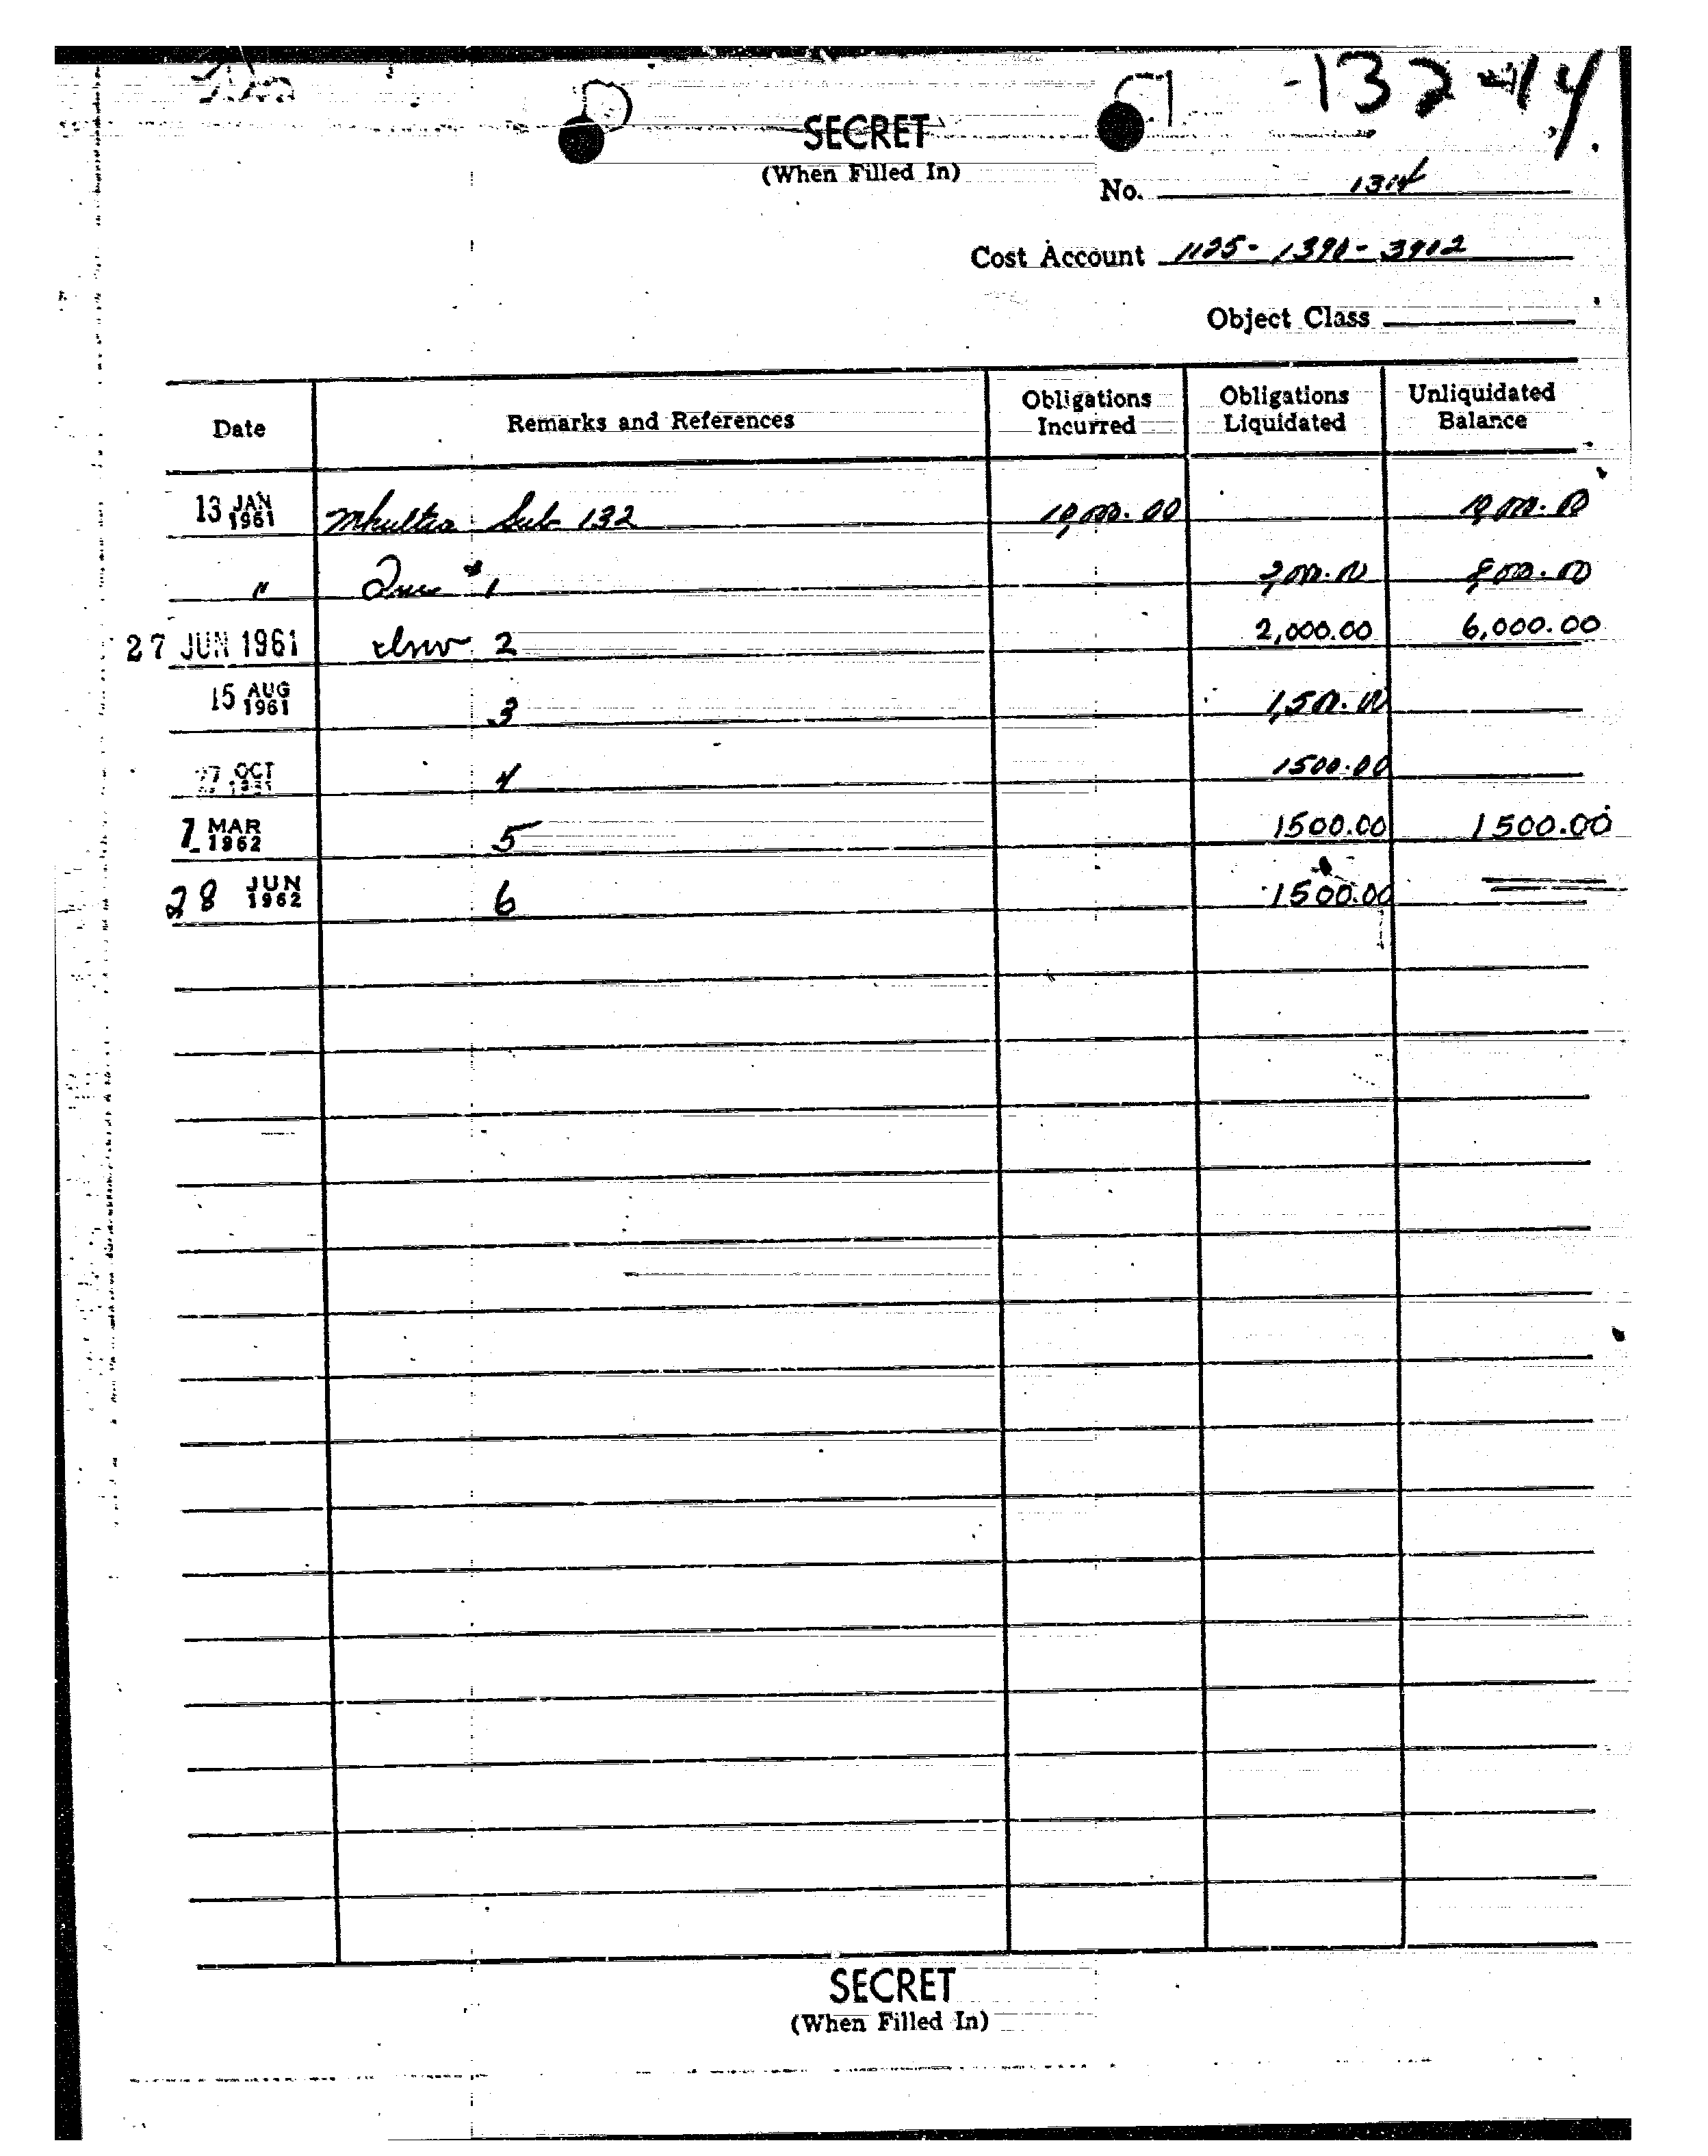 -132-14
SECRET
(When Filled In)
No. 1314
Cost Account 1125-1390-3902
Object Class
Date Remarks and References Obligations Incurred Obligations Liquidated Unliquidated Balance
13 JAN 1961 Mkultra Sub 132 10,000.00 10,000.00
" Inv #1 2,000.00 8,000.00
27 JUN 1961 2 2,000.00 6,000.00
15 AUG 1961 3 1,500.00
27 OCT 1961 4 1500.00
1 MAR 1962 5 1500.00 1500.00
28 JUN 1962 6 1500.00
SECRET
(When Filled In)